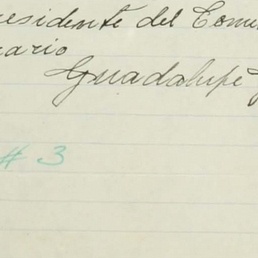 residente del Comi
nario
Guadalupe
# 3